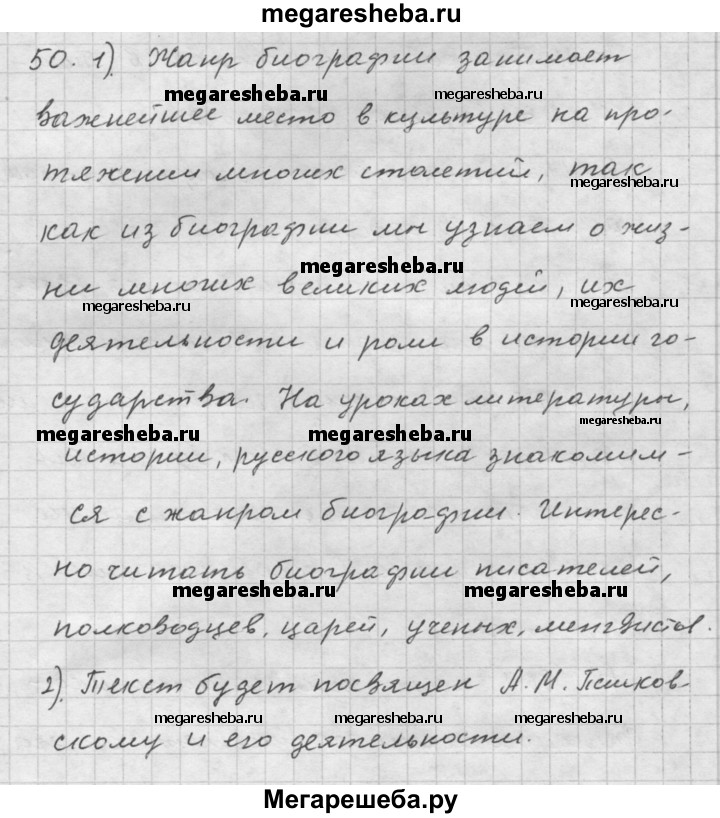 megaresheba.ru
50. 1). Жанр биографии занимает
megaresheba.ru
megaresheba.ru
важнейшее место в культуре на про-
тяжении многих столетий, так
megaresheba.ru
как из биографии мы узнаем о жиз-
megaresheba.ru
ни многих великих людей, их
megaresheba.ru
megaresheba.ru
деятельности и роли в истории го-
сударства. На уроках литературы,
megaresheba.ru
megaresheba.ru
megaresheba.ru
истории, русского языка знакомим-
ся с жанром биографии. Интерес-
но читать биографии писателей,
megaresheba.ru
megaresheba.ru
полководцев, царей, ученых, лингвисты.
2). Текст будет посвящен А. М. Пешков
megaresheba.ru
megaresheba.ru
megaresheba.ru
скому и его деятельности.
Мегарешеба.ру